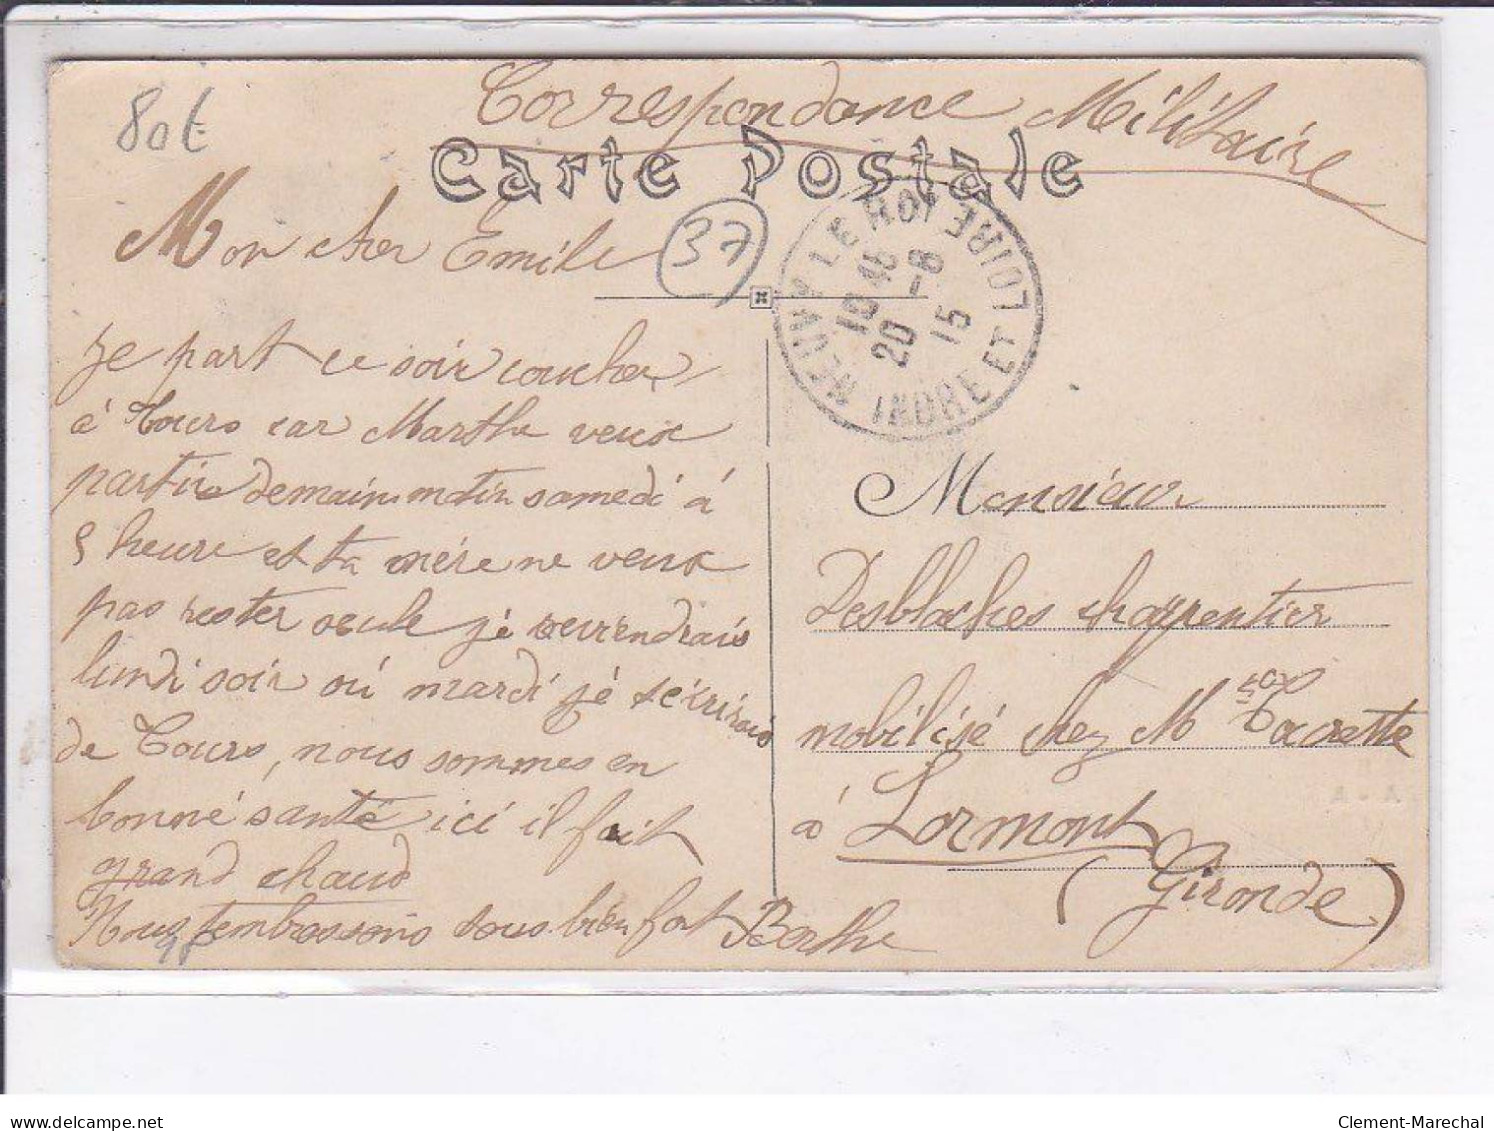 80t
Correspondance Militaire
Carte Postale
37
NEUVY LE ROI
INDRE ET LOIRE
10 45
20 -8
15
Mon cher Emile
je part ce soir coucher
à Tours car Marthe veux
partire demain matin samedi à
5 heure et ta mére ne veux
pas rester seule je reviendrais
lundi soir où mardi je t'écrirais
de Tours, nous sommes en
bonne santé ici il fait
grand chaud
Nous t'embrassons tous bien fort Berthe
Monsieur
Desblaches charpentier
mobilisé chez M
à Lormont
(Gironde)
Clement-Marechal
delcampe.net